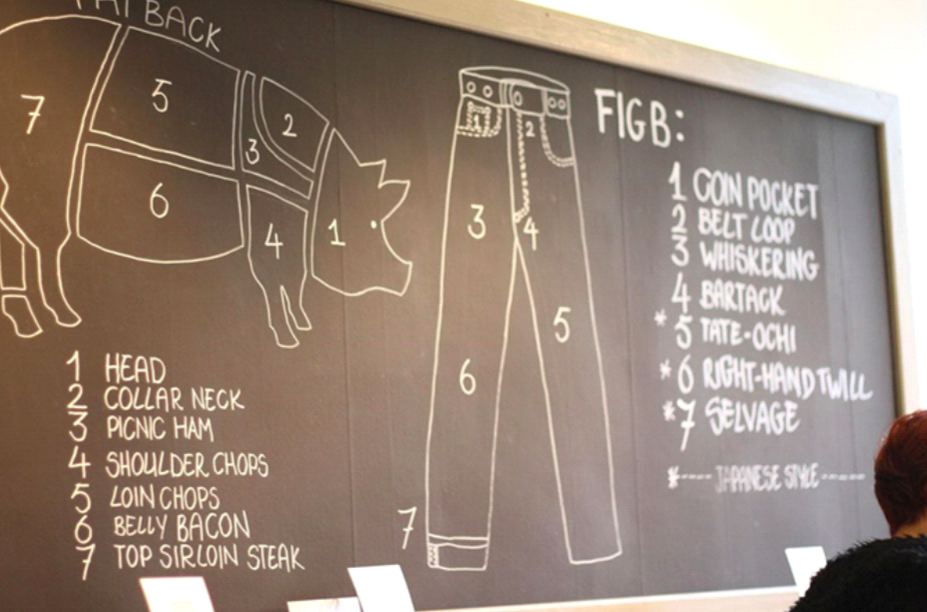 FATBACK
7
5
2
3
6
4
1
1 HEAD
2 COLLAR NECK
3 PICNIC HAM
4 SHOULDER CHOPS
5 LOIN CHOPS
6 BELLY BACON
7 TOP SIRLOIN STEAK
1
2
3
4
5
6
7
FIG B:
1 COIN POCKET
2 BELT LOOP
3 WHISKERING
4 BARTACK
* 5 TATE-OCHI
* 6 RIGHT-HAND TWILL
* 7 SELVAGE
*---- JAPANESE STYLE -----